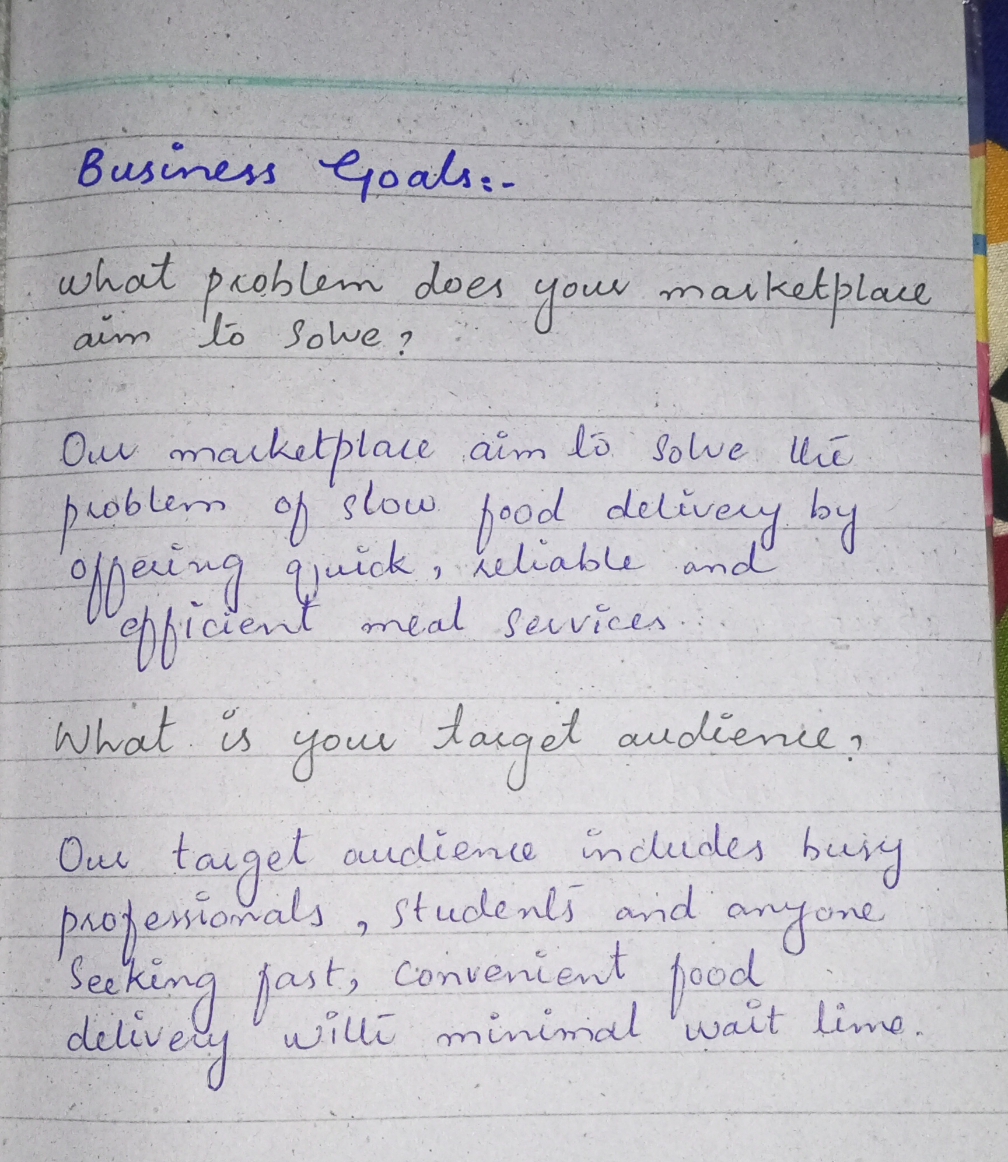 Business Goals:-
what problem does your marketplace
aim to solve?
Our marketplace aim to solve the
problem of slow food delivery by
offering quick, reliable and
efficient meal services.
What is your target audience?
Our target audience includes busy
professionals, students and anyone
seeking fast, convenient food
delivery with minimal wait time.